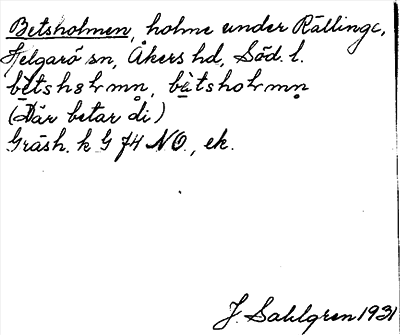 Betsholmen, holme under Rällinge,
Helgarö sn, Åkers hd, Söd. l.
bètshơrmn, bàtshoɫmn̥
(Där betar di)
Gräsh. k G 74 NO., ek.
J. Sahlgren 1931